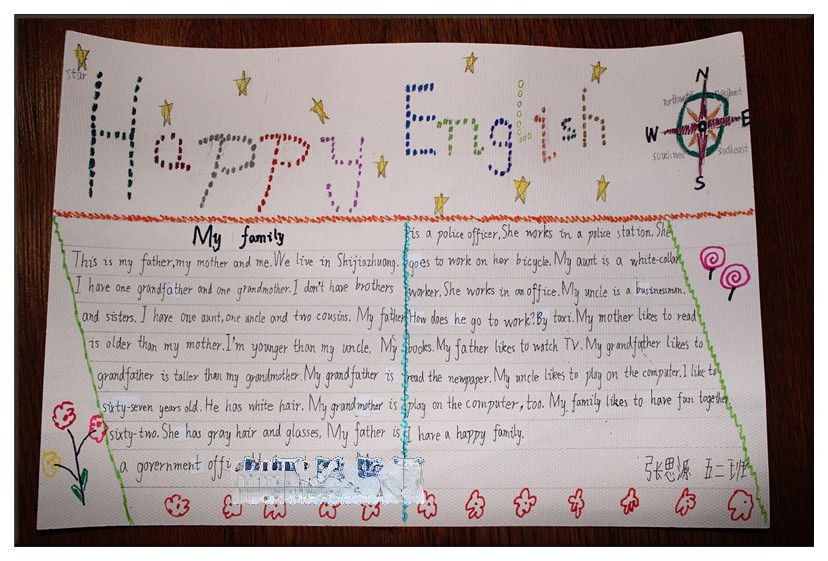 Happy English
star
N
northwest
W
E
southwest
S
My family
This is my father,my mother and me. We live in Shijiazhuang.
I have one grandfather and one grandmother. I don't have brothers
and sisters. I have one aunt, one uncle and two cousins. My father
is older than my mother. I'm younger than my uncle. My
grandfather is taller than my grandmother. My grandfather is
sixty-seven years old. He has white hair. My grandmother is
sixty-two. She has gray hair and glasses. My father is
a government offi
is a police officer. She works in a police station. She
goes to work on her bicycle. My aunt is a white-collar
worker. She works in an office. My uncle is a businessman.
How does he go to work? By taxi. My mother likes to read
books. My father likes to watch TV. My grandfather likes to
read the newpaper. My uncle likes to play on the computer. I like to
play on the computer, too. My family likes to have fun together.
I have a happy family.
张思源 五二班